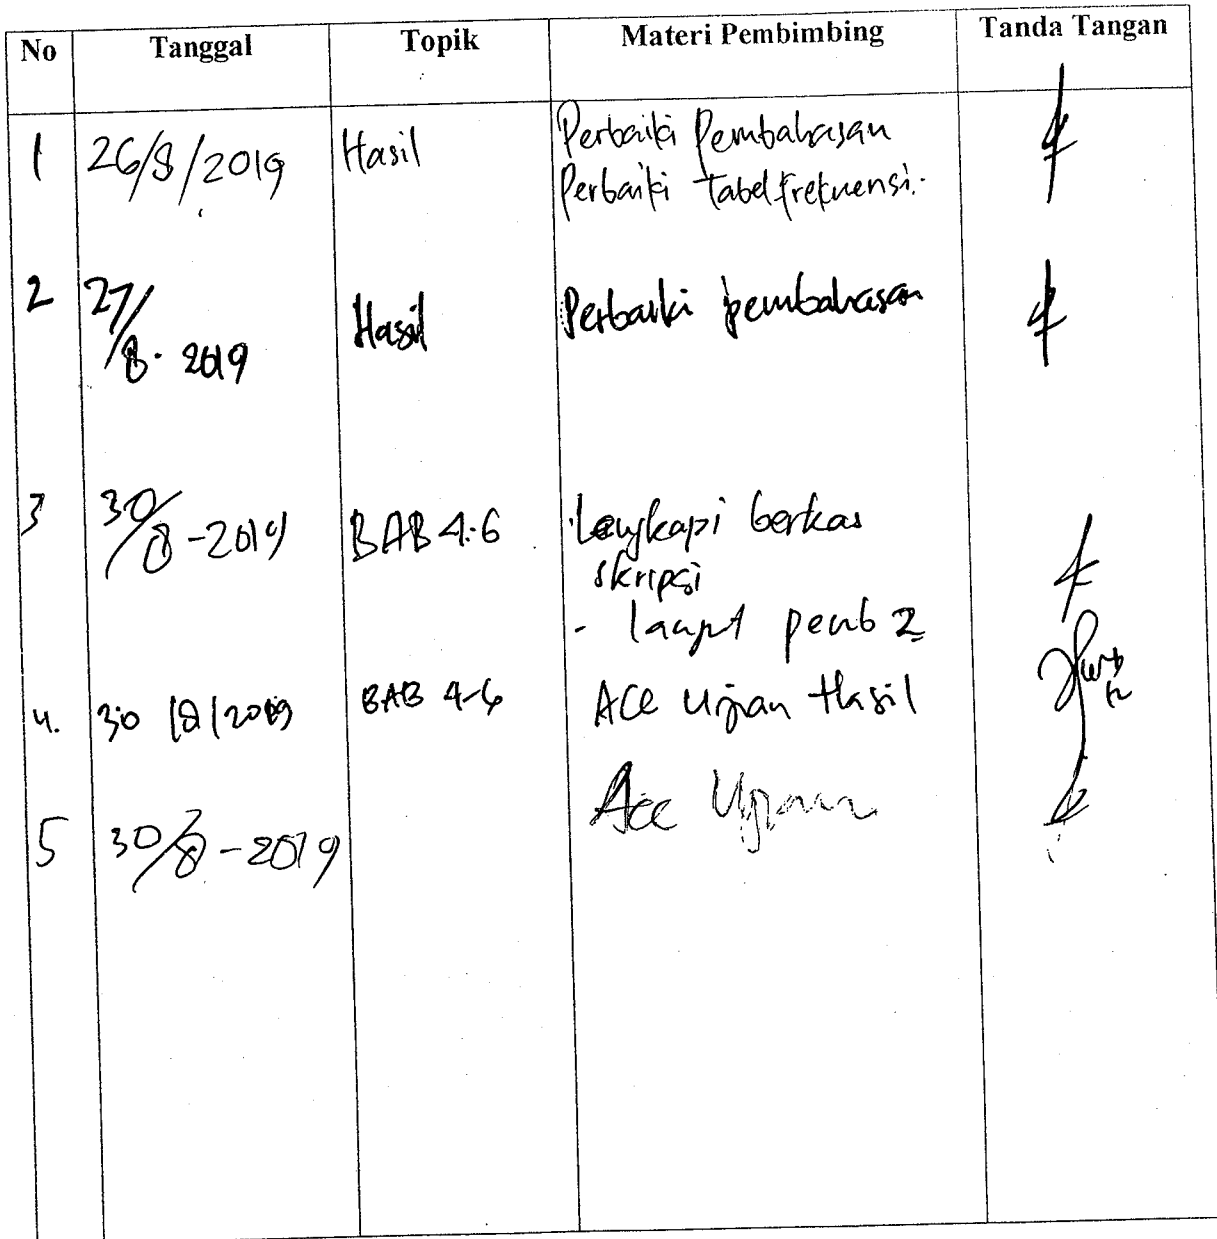 No Tanggal Topik Materi Pembimbing Tanda Tangan
1 26/8/2019 Hasil Perbaiki Pembahasan
Perbaiki tabel frekuensi.
2 27/8. 2019 Hasil Perbaiki pembahasan
3 30/8-2019 BAB 4-6 Lengkapi berkas
skripsi
- lanjut pemb 2
4. 30/8/2019 BAB 4-6 ACC Ujian Hasil
5 30/8-2019 Acc Ujian